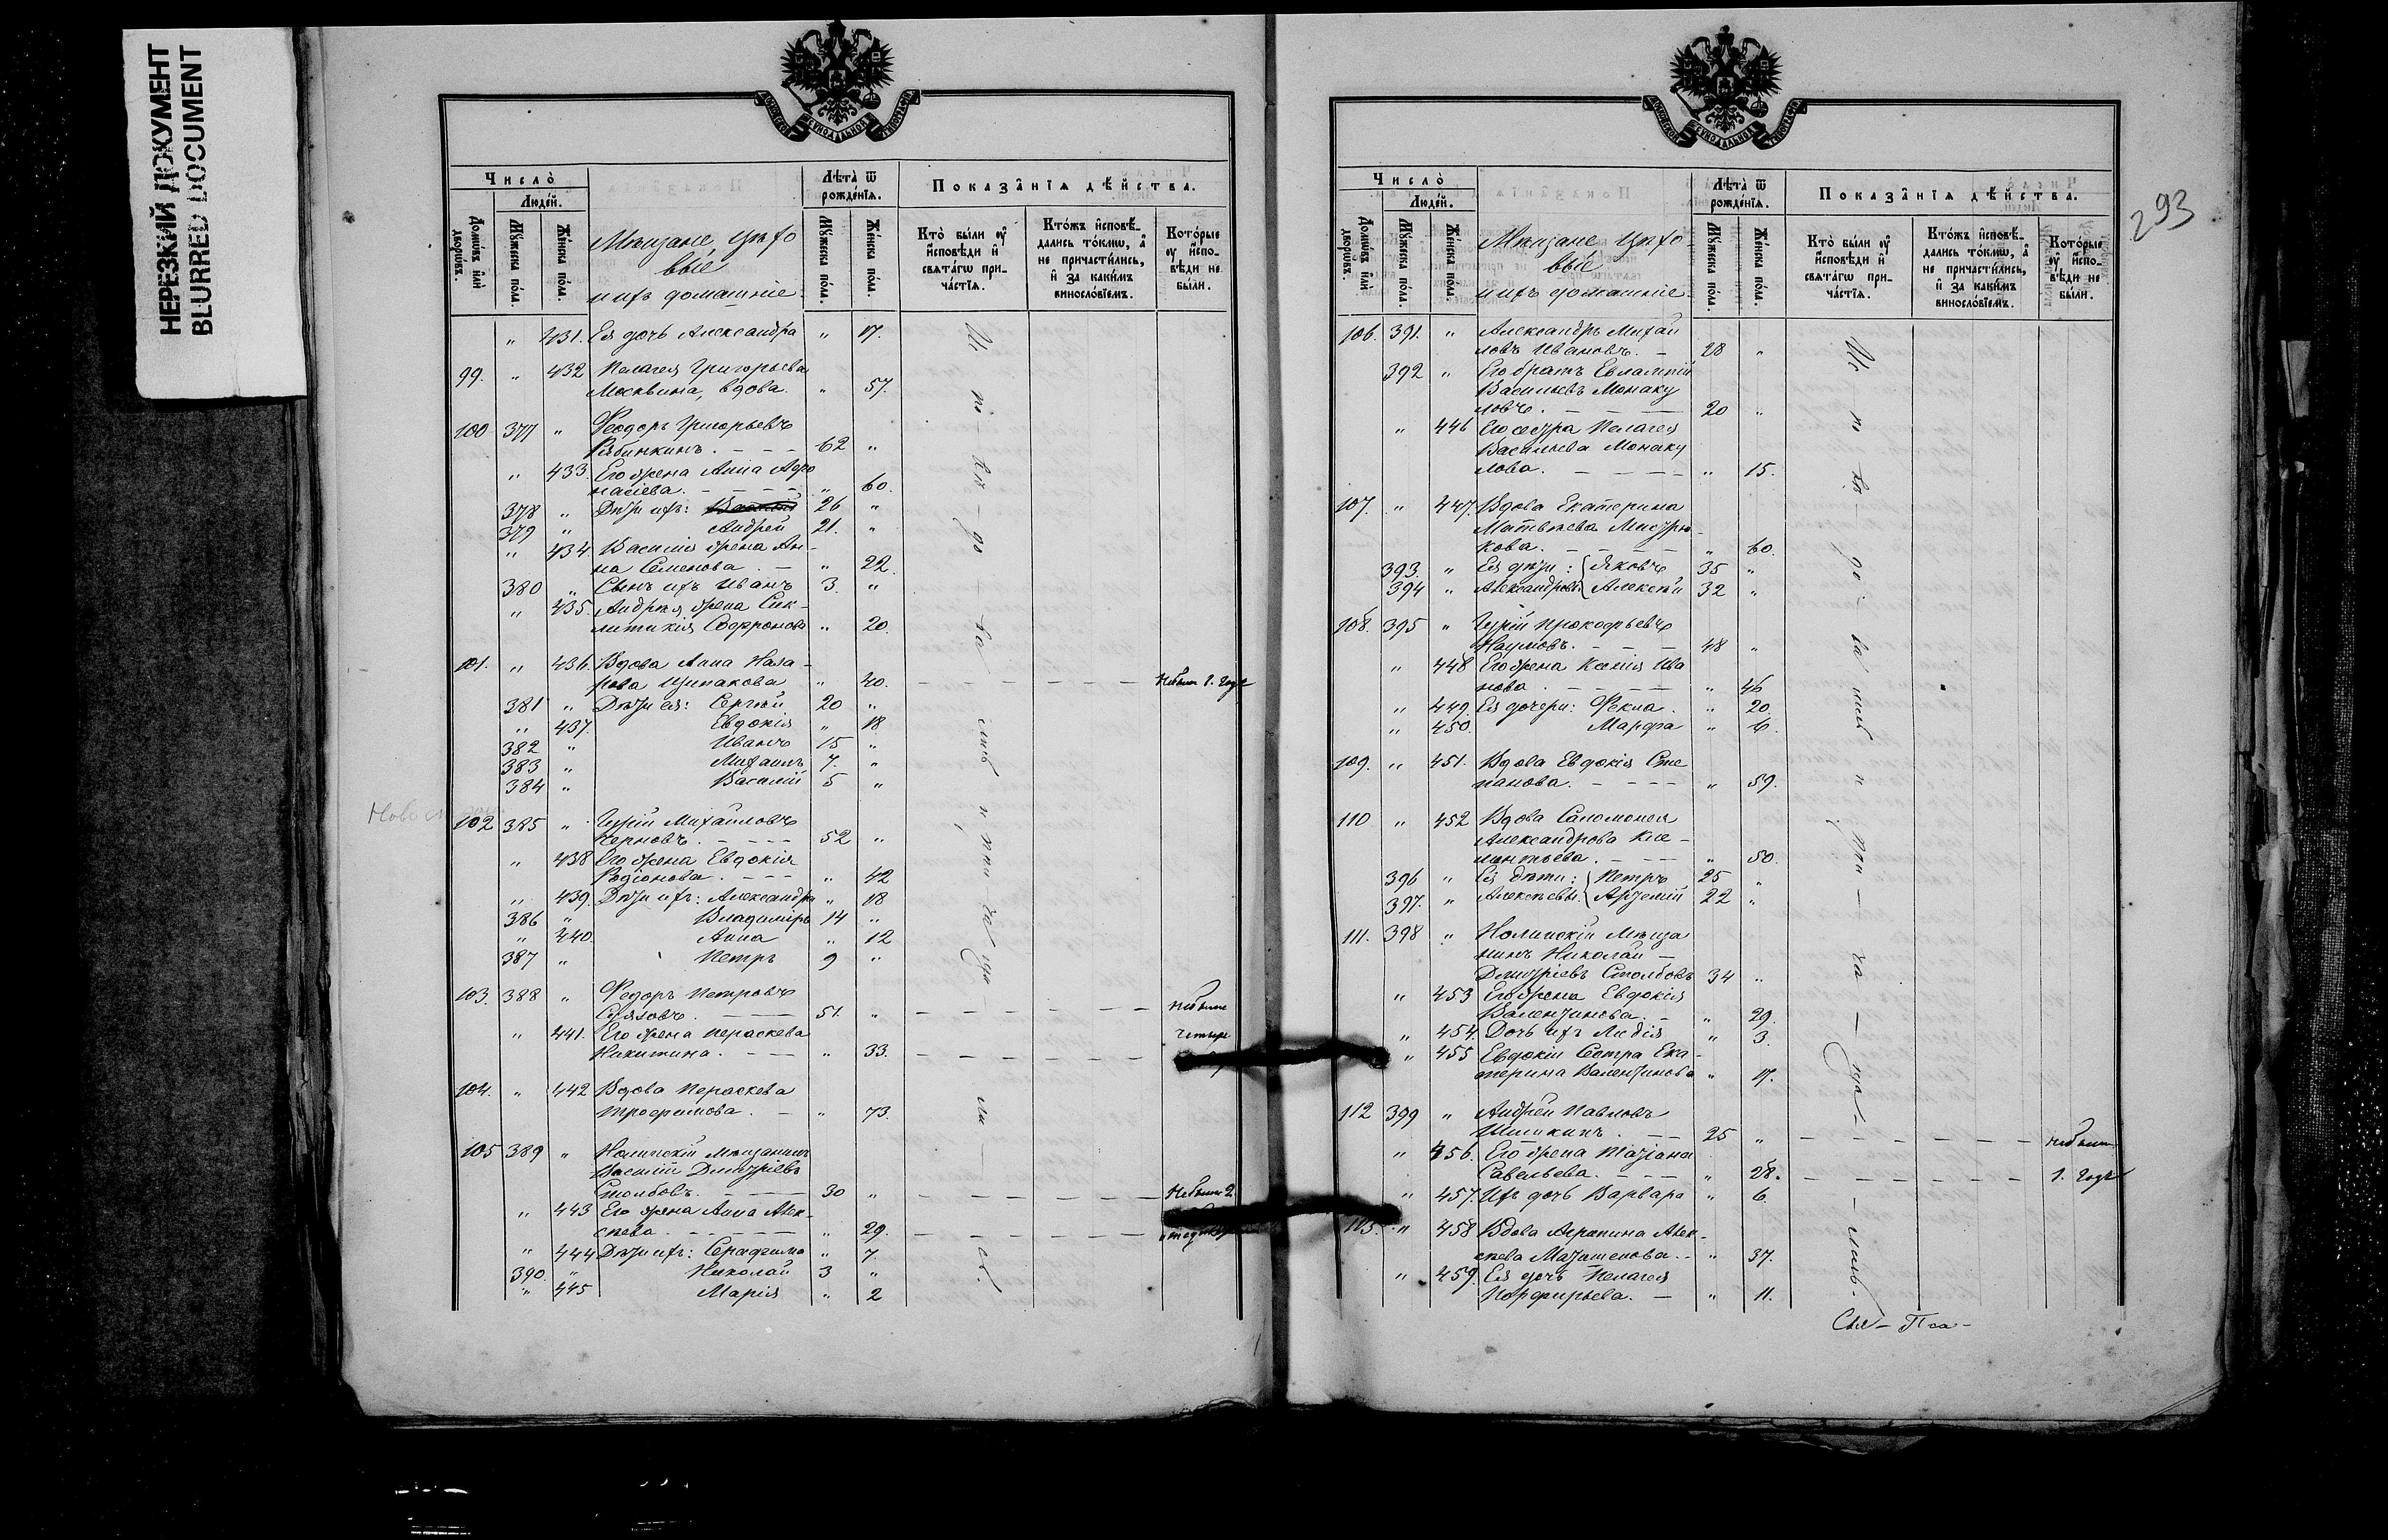 НЕРЕЗКИЙ ДОКУМЕНТ
BLURRED DOCUMENT
МОСКОВСКОЙ СѴНОДАЛЬНОЙ ТИПОГРАФІИ
Число̀
Людей.
Домѡвъ или дворѡвъ.
Мꙋжеска пола.
Женска пола.
Мѣщане, цехо
вые
и ихъ домашніе.
Лѣта ѿ рожденїѧ.
Мꙋжеска пола.
Женска пола.
Показанїѧ дѣйства.
Кто̀ были оу҆ исповѣди и свѧтагѡ причастїѧ.
Ктожъ исповѣдались токмѡ, а не причастились, и за какимъ винословїемъ.
Которые оу҆ исповѣди не были.
" 431. Ея дочь Александра " 17.
99. " 432 Пелагея Григорьева
Москвина, вдова. " 57.
100 377 " Ѳеодоръ Григорьевъ
Рябинкинъ. 62 "
" 433. Его жена Анна Афо
насіева. " 60.
378 " Дѣти ихъ: 26 "
379 " Андрей 21. "
" 434. Василія жена Ан-
на Семенова. " 22.
380 " Сынъ ихъ Иванъ 3. "
" 435. Андрея жена Сик-
литикія Софронова " 20.
101. " 436. Вдова Анна Наза-
рова " 40. Небыли 1. годъ
381 " Дѣти ея: Сергѣй 20 "
" 437. Евдокія " 18
382 " Иванъ 15 "
383 " Михаилъ 7. "
384 " Василій 5 "
102 385 " Гурій Михайловъ
Черновъ. 52 "
" 438 Его жена Евдокія
Родіонова. " 42
" 439. Дѣти ихъ: Александра " 18
386 " Владиміръ 14 "
" 440. Анна " 12
387 " Петръ 9 "
103. 388 " Ѳедоръ Петровъ
51. " небыли
" 441. Его жена Пераскева четыре
Никитина. " 33.
104. " 442 Вдова Пераскева
Трофимова. " 73.
105 389 " Нолинскій Мѣщанинъ
Василій Дмитріевъ
Столбовъ. 30 " Небыли 2.
" 443 Его жена Анна Алек-
сѣева. " 29.
" 444 Дѣти ихъ: Серафима " 7.
390. " Николай 3 "
" 445 Марія " 2
Ис-по-вѣ-до-ва-лись и при-ча-ща-ли-сь.
293
Число̀
Людей.
Домѡвъ или дворѡвъ.
Мꙋжеска пола.
Женска пола.
Мѣщане цехо-
вые
и ихъ домашніе.
Лѣта ѿ рожденїѧ.
Мꙋжеска пола.
Женска пола.
Показанїѧ дѣйства.
Кто̀ были оу҆ исповѣди и свѧтагѡ причастїѧ.
Ктожъ исповѣдались токмѡ, а не причастились, и за какимъ винословїемъ.
Которые оу҆ исповѣди не были.
106. 391. " Александръ Михай
ловъ Ивановъ. 28 "
392 " Его братъ Евлампій
Васильевъ Монаку
ловъ. 20 "
" 446 Его сестра Пелагея
Васильева Монаку
лова. " 15.
107. " 447. Вдова Екатерина
Матвѣева
кова. " 60.
393. " Ея дѣти: Яковъ 35 "
394 " Александровы Алексѣй 32 "
108. 395 " Гурій Прокофьевъ
Наумовъ. 48 "
" 448 Его жена Ксенія Ива
нова. " 46
" 449. Ея дочери: Ѳекла. " 20.
" 450. Марфа " 16.
109. " 451. Вдова Евдокія Сте
панова. " 59.
110 " 452 Вдова Саломонея
Александрова Кле-
ментьева. " 50.
396 " Ея дѣти: Петръ 25 "
397. " Алексѣевы Артемій 22 "
111. 398 " Нолинскій Мѣща
нинъ Николай
Дмитріевъ Столбовъ 34 "
" 453 Его жена Евдокія
Валентинова. " 29.
" 454. Дочь ихъ Лидія " 3.
" 455 Евдокіи Сестра Ека-
терина Валентинова " 17.
112 399 " Андрей Павловъ
Шишкинъ. 25 " небыли
" 456. Его жена Татіана
Савельева. " 28. 1. годъ
" 457. Ихъ дочь Варвара " 6
113. " 458 Вдова Агрипина Алек-
сѣева " 37.
" 459. Ея дочь Пелагея
Порфирьева. " 11.
Ис-по-вѣ-до-ва-лись и при-ча-ща-лись.